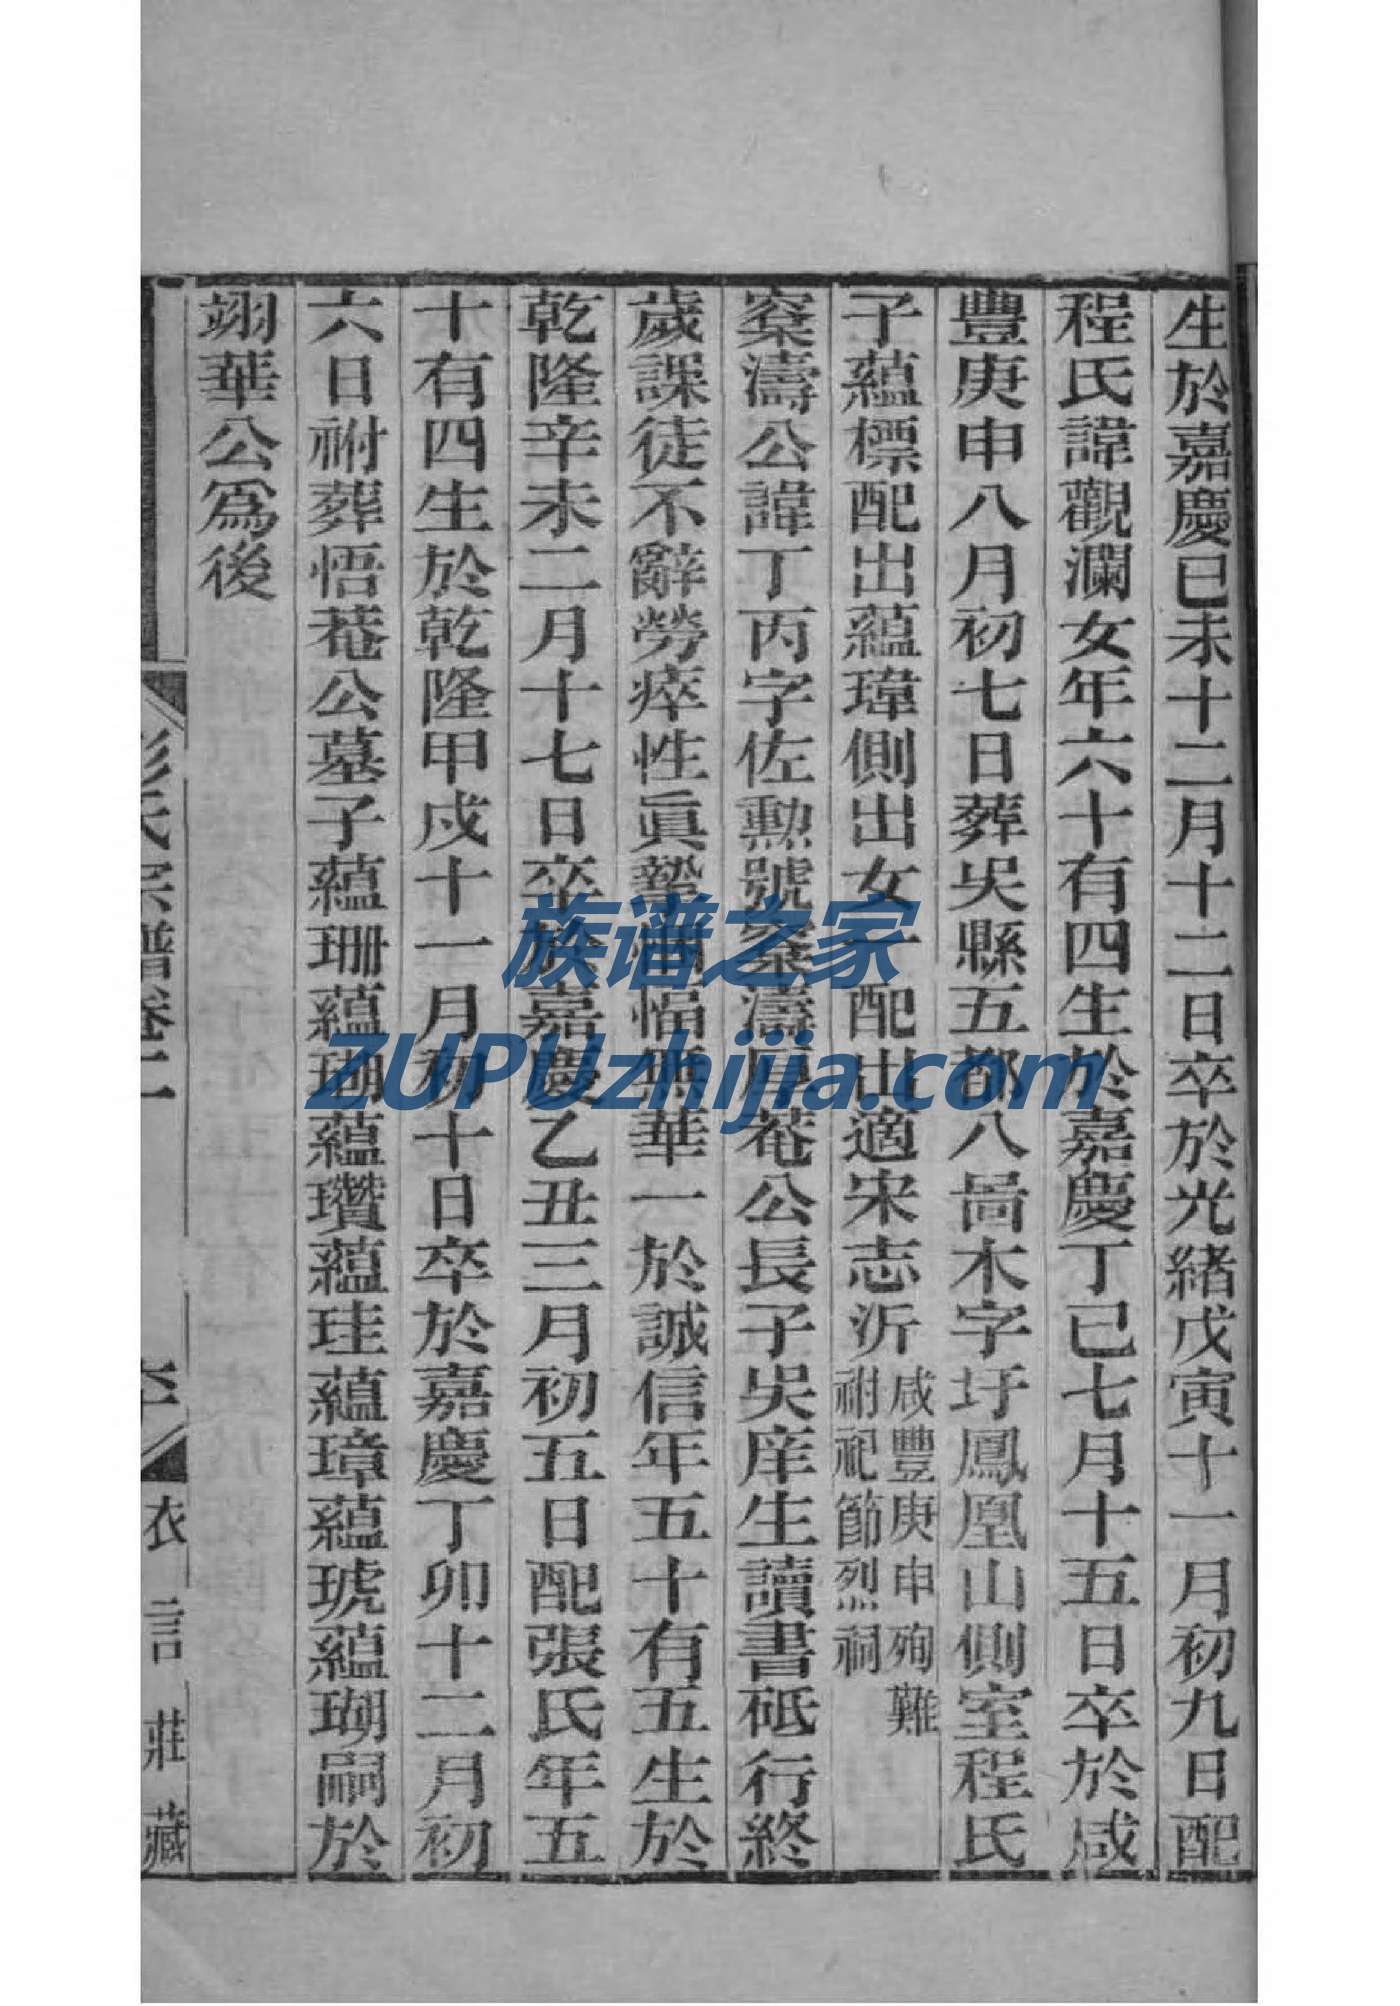 生於嘉慶已未十二月十二日卒於光緒戊寅十一月初九日配
程氏諱觀瀾女年六十有四生於嘉慶丁已七月十五日卒於咸
豐庚申八月初七日葬吳縣五都八啚木字圩鳳凰山側室程氏
子蘊標配出蘊瑋側出女一配出適宋志沂咸豐庚申殉難祔祀節烈祠
寀濤公諱丁丙字佐勲號寀濤厚菴公長子吳庠生讀書砥行終
歲課徒不辭勞瘁性眞摯悃愊無華一於誠信年五十有五生於
乾隆辛未二月十七日卒於嘉慶乙丑三月初五日配張氏年五
十有四生於乾隆甲戍十一月初十日卒於嘉慶丁卯十二月初
六日祔葬悟菴公墓子蘊珊蘊瑚蘊瓚蘊珪蘊璋蘊琥蘊瑚嗣於
翊華公爲後
彭氏宗譜卷二
衣言莊藏
族谱之家
ZUPUzhijia.com